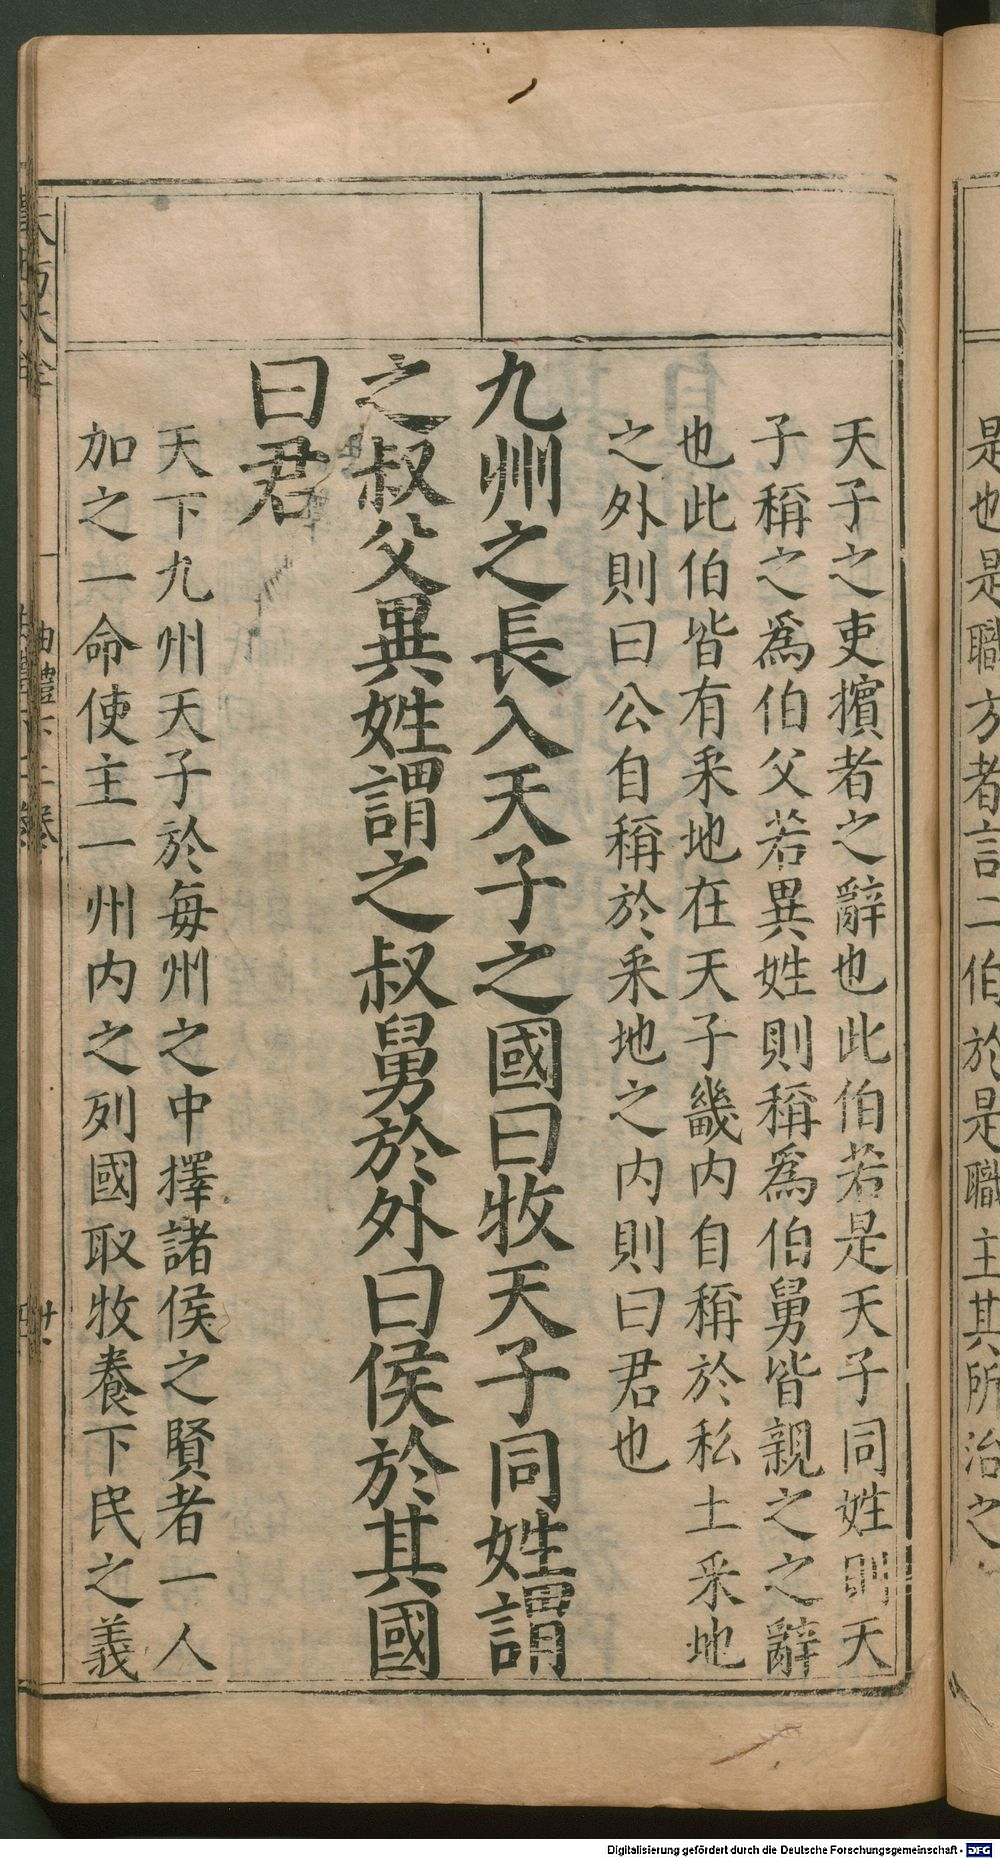 是也是職方者言二伯於是職主其所治之
天子之吏擯者之辭也此伯若是天子同姓則天
子稱之為伯父若異姓則稱為伯舅皆親之之辭
也此伯皆有采地在天子畿内自稱於私土采地
之外則曰公自稱於采地之内則曰君也
九州之長入天子之國曰牧天子同姓謂
之叔父異姓謂之叔舅於外曰侯於其國
曰君
天下九州天子於每州之中擇諸侯之賢者一人
加之一命使主一州内之列國取牧養下民之義
曲禮下二卷
Digitalisierung gefördert durch die Deutsche Forschungsgemeinschaft - DFG